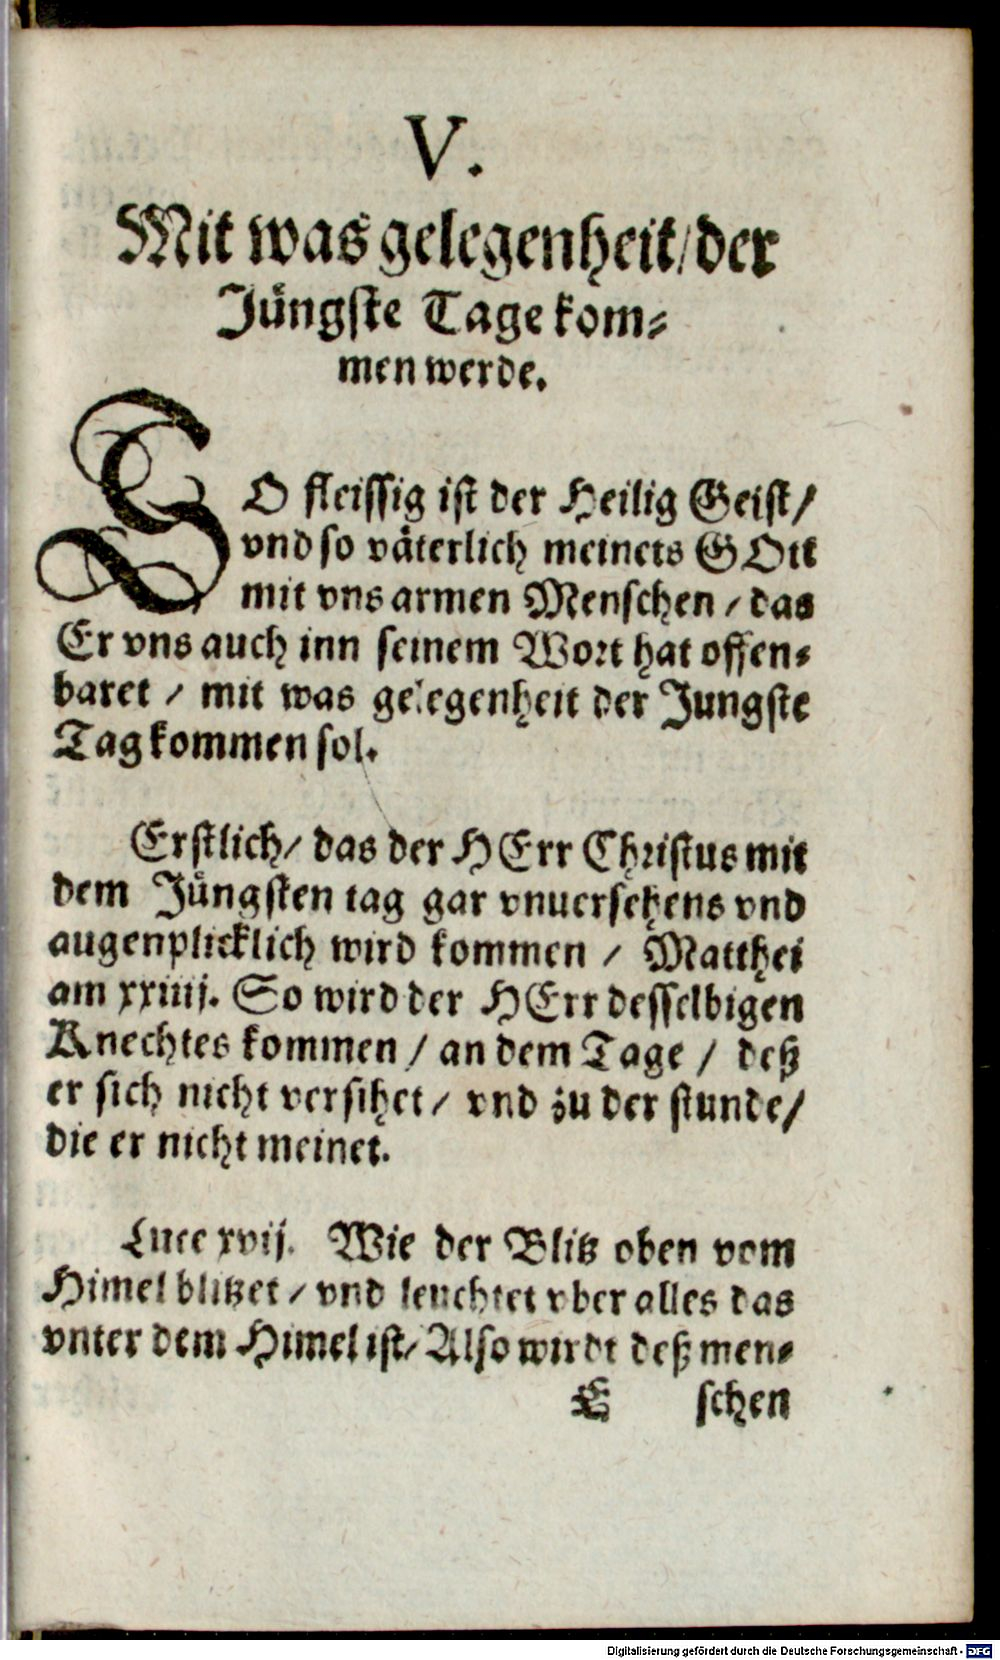 V.
Mit was gelegenheit/ der
Jüngste Tage kom-
men werde.
SO fleissig ist der Heilig Geist/
vnd so väterlich meinets GOtt
mit vns armen Menschen / das
Er vns auch inn seinem Wort hat offen-
baret / mit was gelegenheit der Jungste
Tag kommen sol.
Erstlich/ das der HErr Christus mit
dem Jüngsten tag gar vnuersehens vnd
augenplicklich wird kommen / Matthei
am xxiiij. So wird der HErr desselbigen
Knechtes kommen / an dem Tage / deß
er sich nicht versihet / vnd zu der stunde/
die er nicht meinet.
Luce xvij. Wie der Blitz oben vom
Himel blitzet / vnd leuchtet vber alles das
vnter dem Himel ist/ Also wirdt deß men-
E schen
Digitalisierung gefördert durch die Deutsche Forschungsgemeinschaft - DFG